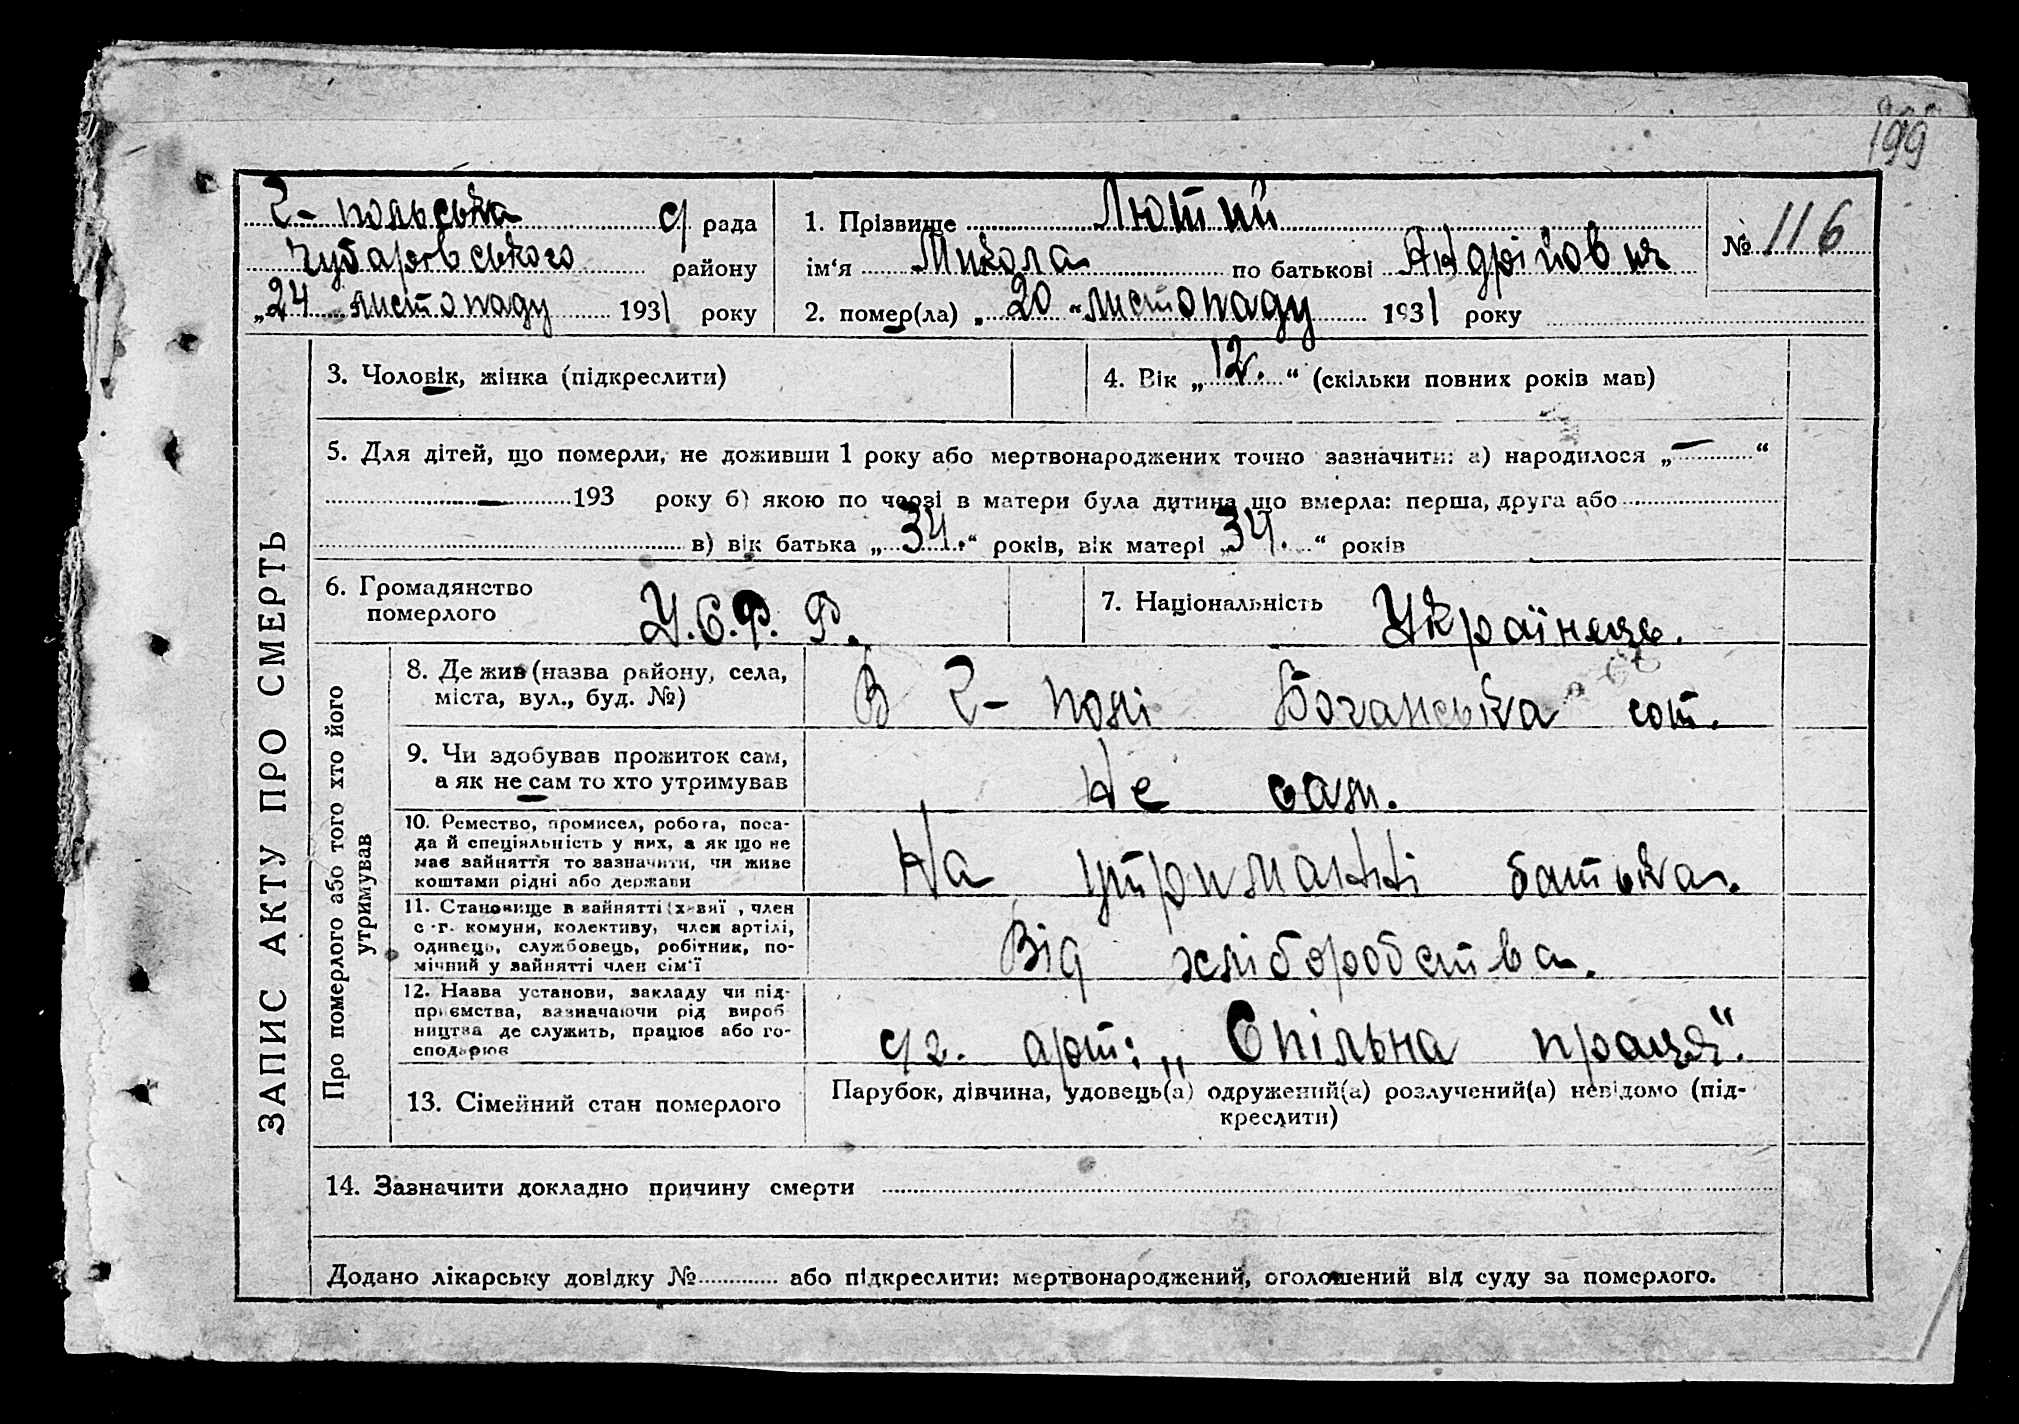 199
Г-польська с/ рада
Чубарівського району
„24 листопаду 1931 року
1. Прізвище Лютий
ім‘я Микола по батькові Андрійович
2. помер(ла) „20“ листопаду 1931 року
№ 116
ЗАПИС АКТУ ПРО СМЕРТЬ
3. Чоловік, жінка (підкреслити)
4. Вік „12г.“ (скільки повних років мав)
5. Для дітей, що померли, не доживши 1 року або мертвонароджених точно зазначити: а) народилося „—“
— 193 року б) якою по черзі в матери була дитина що вмерла: перша, друга або
в) вік батька „34.“ років, вік матері „34.“ років
6. Громадянство
померлого
У.С.Р.Р.
7. Національність Українець.
Про померлого або того хто його
утримував
8. Де жив (назва району, села,
міста, вул., буд. №)
В Г-полі сот.
9. Чи здобував прожиток сам,
а як не сам то хто утримував
Не сам.
10. Ремество, промисел, робота, поса-
да й спеціяльність у них, а як що не
має зайняття то зазначити, чи живе
коштами рідні або держави
На утриманні батька.
11. Становище в зайнятті (х-вяї , член
с.-г. комуни, колективу, член артілі,
одинець, службовець, робітник, по-
мічний у зайнятті член сім‘ї
Від хліборобства.
12. Назва установи, закладу чи під-
приємства, вазначаючи рід вироб
ництва де служить, працює або го-
сподарює
с/г. арт: „Спільна праця“.
13. Сімейний стан померлого
Парубок, дівчина, удовець(а) одружений(а) розлучений(а) невідомо (під-
креслити)
14. Зазначити докладно причину смерти
Додано лікарську довідку № або підкреслити: мертвонароджений, оголошений від суду за померлого.